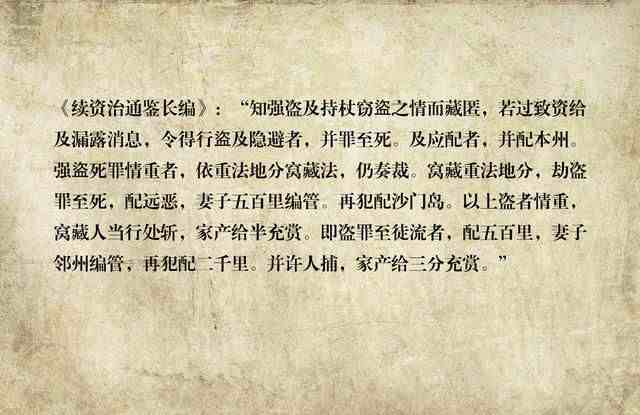 《续资治通鉴长编》：“知强盗及持杖窃盗之情而藏匿，若过致资给
及漏露消息，令得行盗及隐避者，并罪至死。及应配者，并配本州。
强盗死罪情重者，依重法地分窝藏法，仍奏裁。窝藏重法地分，劫盗
罪至死，配远恶，妻子五百里编管。再犯配沙门岛。以上盗者情重，
窝藏人当行处斩，家产给半充赏。即盗罪至徒流者，配五百里，妻子
邻州编管，再犯配二千里。并许人捕，家产给三分充赏。”